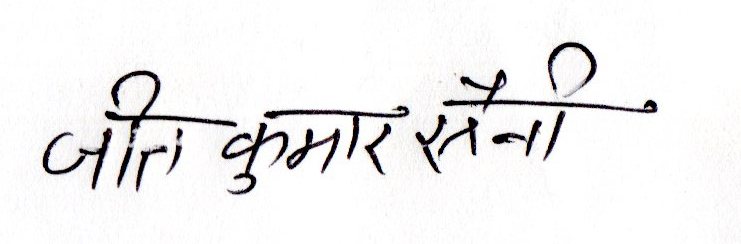 जीत कुमार सैनी